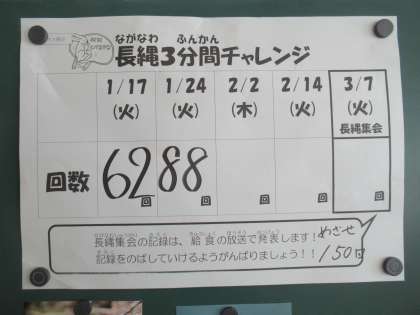 ながなわ ふんかん
長縄3分間チャレンジ
1/17 1/24 2/2 2/14 3/7
(火) (火) (木) (火) (火)
長縄集会
回数 62回 88回 回 回 回
長縄集会の記録は、給食の放送で発表します!
記録をのばしていけるようがんばりましょう!!
めざせ
150回